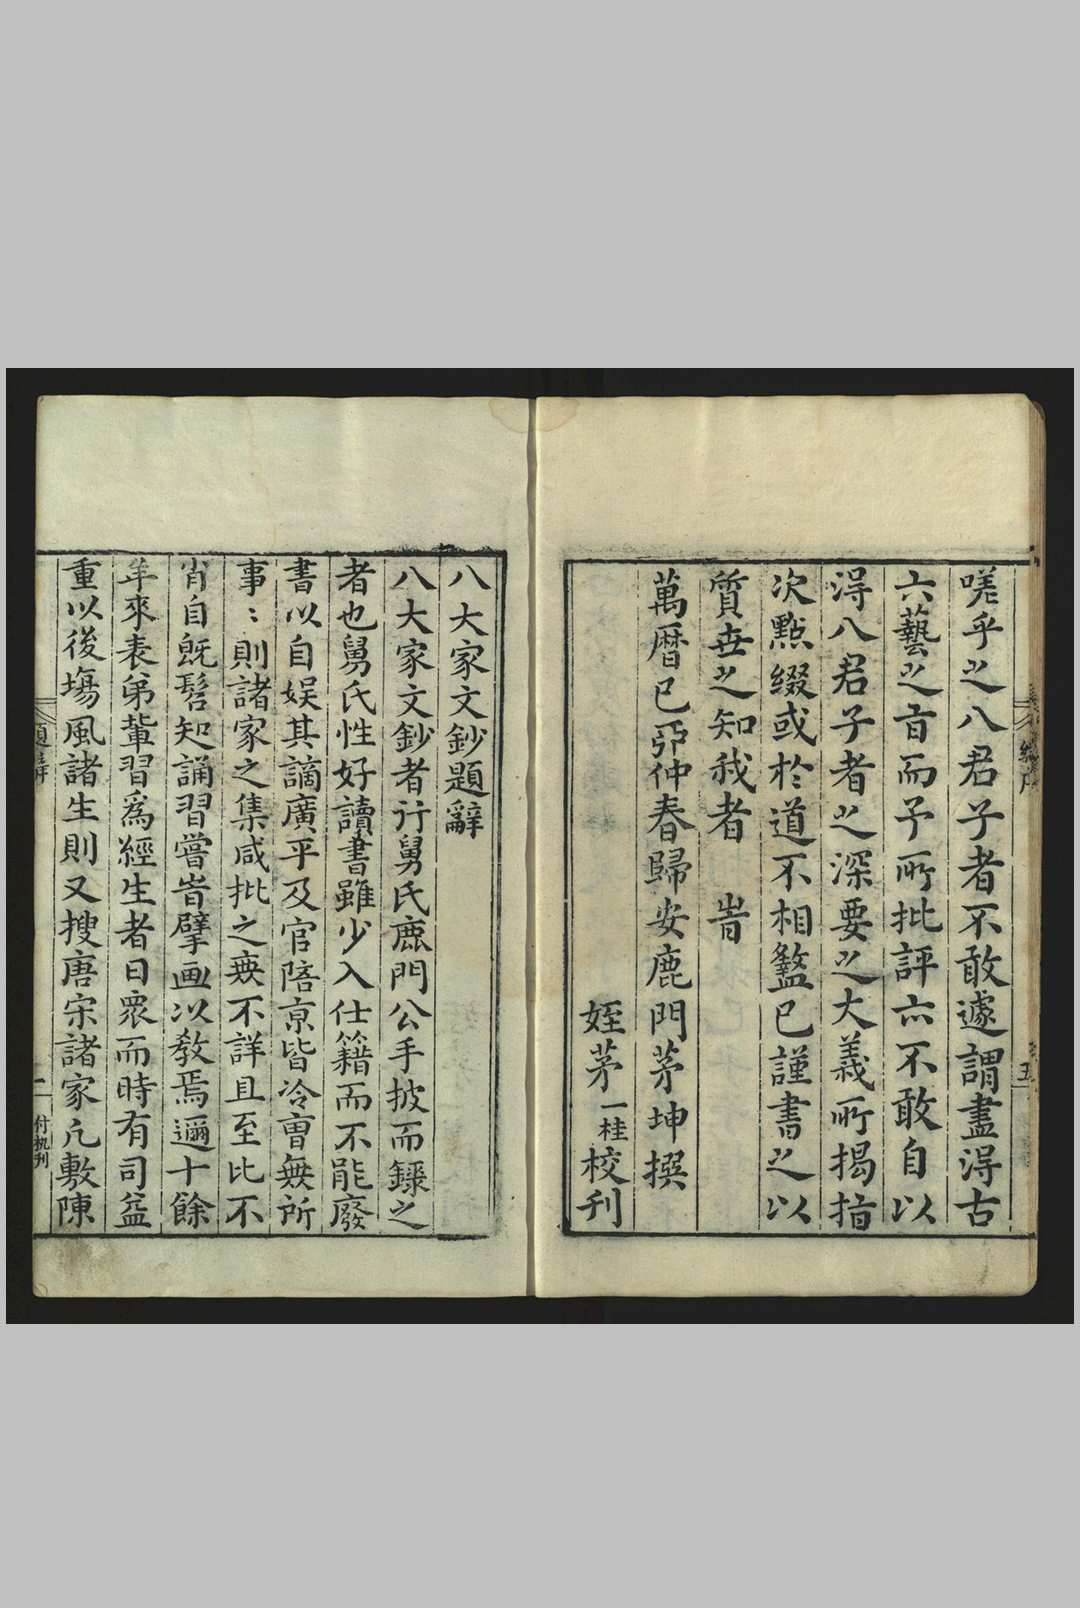 嗟乎之八君子者不敢遽謂盡得古
六藝之旨而予所批評亦不敢自以
得八君子者之深要之大義所揭指
次點綴或於道不相盭已謹書之以
質世之知我者　旹
萬曆己卯仲春歸安鹿門茅坤撰
姪茅一桂校刊
八大家文鈔題辭
八大家文鈔者行舅氏鹿門公手披而錄之
者也舅氏性好讀書雖少入仕籍而不能廢
書以自娱其謫廣平及官陪京皆冷曹無所
事〻則諸家之集咸批之無不詳且至比不
肖自既髫知誦習嘗旹擘画以教焉邇十餘
年來表弟輩習為經生者日衆而時有司益
重以後塲風諸生則又搜唐宋諸家凡敷陳
題辭
一
付机刊